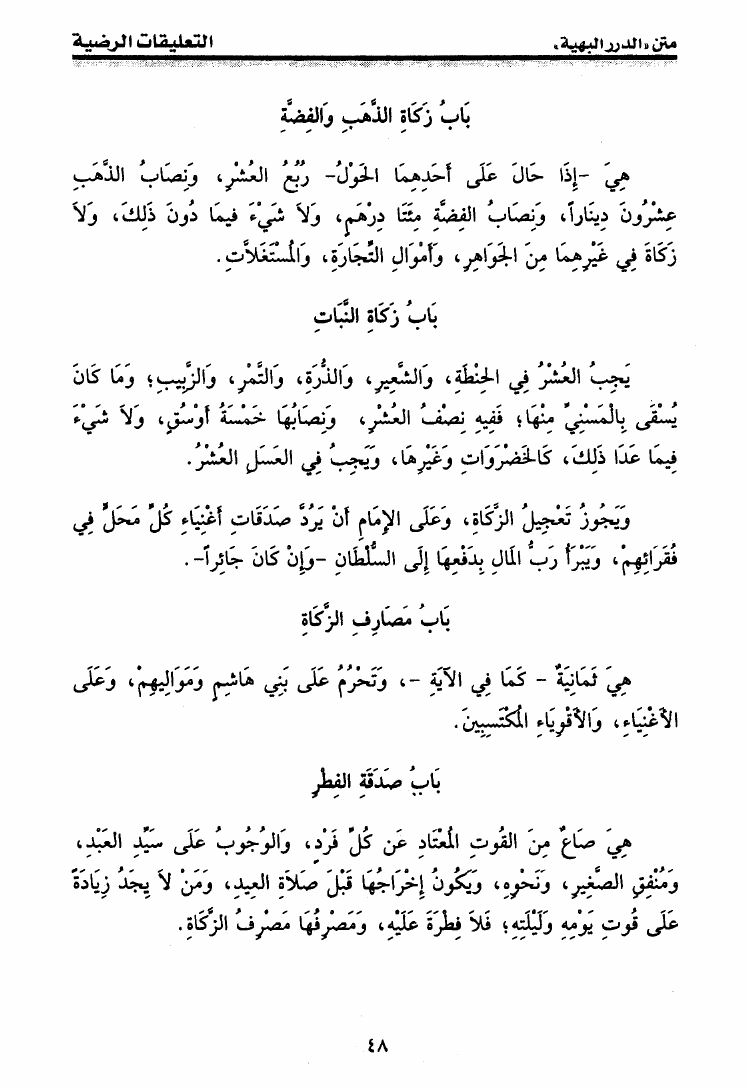 متن «الدرر البهية» التعليقات الرضية
بَابُ زَكَاةِ الذَّهَبِ وَالفِضَّةِ
هِيَ -إِذَا حَالَ عَلَى أَحَدِهِمَا الحَوْلُ- رُبُعُ العُشْرِ، وَنِصَابُ الذَّهَبِ
عِشْرُونَ دِينَاراً، وَنِصَابُ الفِضَّةِ مِئَتَا دِرْهَمٍ، وَلاَ شَيْءَ فِيمَا دُونَ ذَلِكَ، وَلاَ
زَكَاةَ فِي غَيْرِهِمَا مِنَ الجَوَاهِرِ، وَأَمْوَالِ التِّجَارَةِ، وَالمُسْتَغَلاَّتِ.
بَابُ زَكَاةِ النَّبَاتِ
يَجِبُ العُشْرُ فِي الحِنْطَةِ، وَالشَّعِيرِ، وَالذُّرَةِ، وَالتَّمْرِ، وَالزَّبِيبِ؛ وَمَا كَانَ
يُسْقَى بِالْمَسْنِيِّ مِنْهَا؛ فَفِيهِ نِصْفُ العُشْرِ، وَنِصَابُهَا خَمْسَةُ أَوْسُقٍ، وَلاَ شَيْءَ
فِيمَا عَدَا ذَلِكَ، كَالخَضْرَوَاتِ وَغَيْرِهَا، وَيَجِبُ فِي العَسَلِ العُشْرُ.
وَيَجُوزُ تَعْجِيلُ الزَّكَاةِ، وَعَلَى الإِمَامِ أَنْ يَرُدَّ صَدَقَاتِ أَغْنِيَاءِ كُلِّ مَحَلٍّ فِي
فُقَرَائِهِمْ، وَيَبْرَأُ رَبُّ المَالِ بِدَفْعِهَا إِلَى السُّلْطَانِ -وَإِنْ كَانَ جَائِراً-.
بَابُ مَصَارِفِ الزَّكَاةِ
هِيَ ثَمَانِيَةٌ - كَمَا فِي الآيَةِ -، وَتَحْرُمُ عَلَى بَنِي هَاشِمٍ وَمَوَالِيهِمْ، وَعَلَى
الأَغْنِيَاءِ، وَالأَقْوِيَاءِ المُكْتَسِبِينَ.
بَابُ صَدَقَةِ الفِطْرِ
هِيَ صَاعٌ مِنَ القُوتِ المُعْتَادِ عَن كُلِّ فَرْدٍ، وَالوُجُوبُ عَلَى سَيِّدِ العَبْدِ،
وَمُنْفِقِ الصَّغِيرِ، وَنَحْوِهِ، وَيَكُونُ إِخْرَاجُهَا قَبْلَ صَلاَةِ العِيدِ، وَمَنْ لاَ يَجِدُ زِيَادَةً
عَلَى قُوتِ يَوْمِهِ وَلَيْلَتِهِ؛ فَلاَ فِطْرَةَ عَلَيْهِ، وَمَصْرِفُهَا مَصْرِفُ الزَّكَاةِ.
٤٨